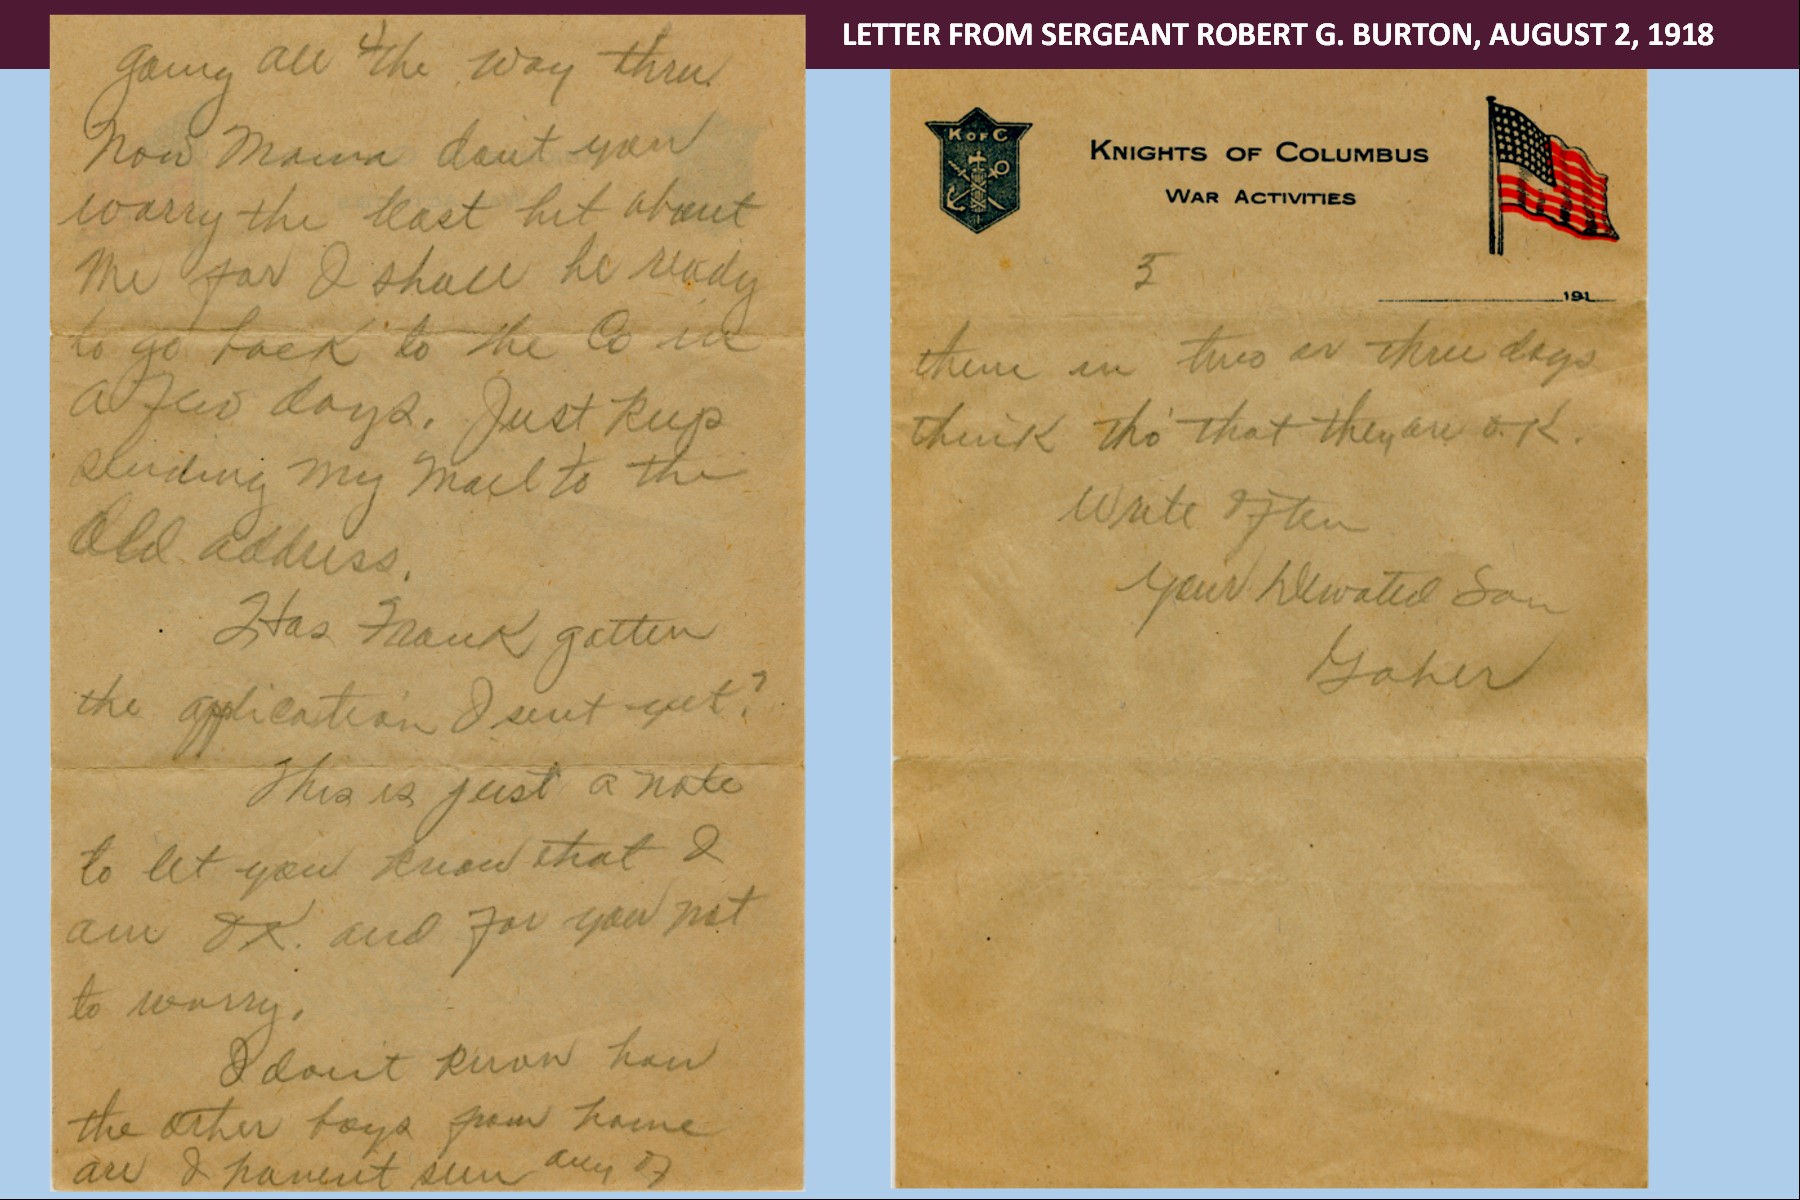 LETTER FROM SERGEANT ROBERT G. BURTON, AUGUST 2, 1918
4
going all the way thru.
Now Mama dont you
worry the least bit about
me for I shall be ready
to go back to the Co in
a few days. Just keep
sending my mail to the
Old address.
Has Frank gotten
the application I sent yet?
This is just a note
to let you know that I
am O.K. and for you not
to worry.
I dont know how
the other boys from home
are I havent seen any of
K OF C
KNIGHTS OF COLUMBUS
WAR ACTIVITIES
5
191
them in two or three days
think tho' that they are O.K.
Write Often
Your Devoted Son
Goher